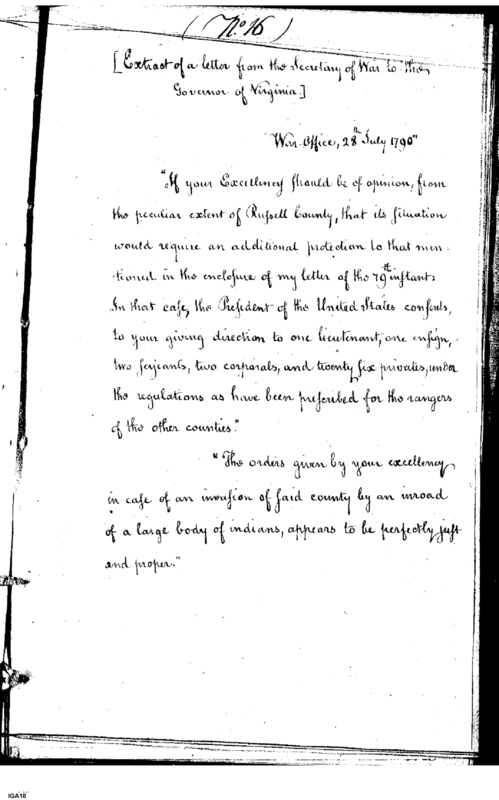 (No. 16)
[Extract of a letter from the Secretary of War to the
Governor of Virginia.]
War-Office, 28th July 1790"
"If your Excellency should be of opinion, from
the peculiar extent of Russell County, that its situation
would require an additional protection to that men-
tioned in the enclosure of my letter of the 29th instant:
In that case, the President of the United States consents,
to your giving direction to one lieutenant, one ensign,
two serjeants, two corporals, and twenty six privates, under
the regulations as have been prescribed for the rangers
of the other counties."
"The orders given by your excellency
in case of an invasion of said county by an inroad
of a large body of indians, appears to be perfectly just
and proper."
IGA18